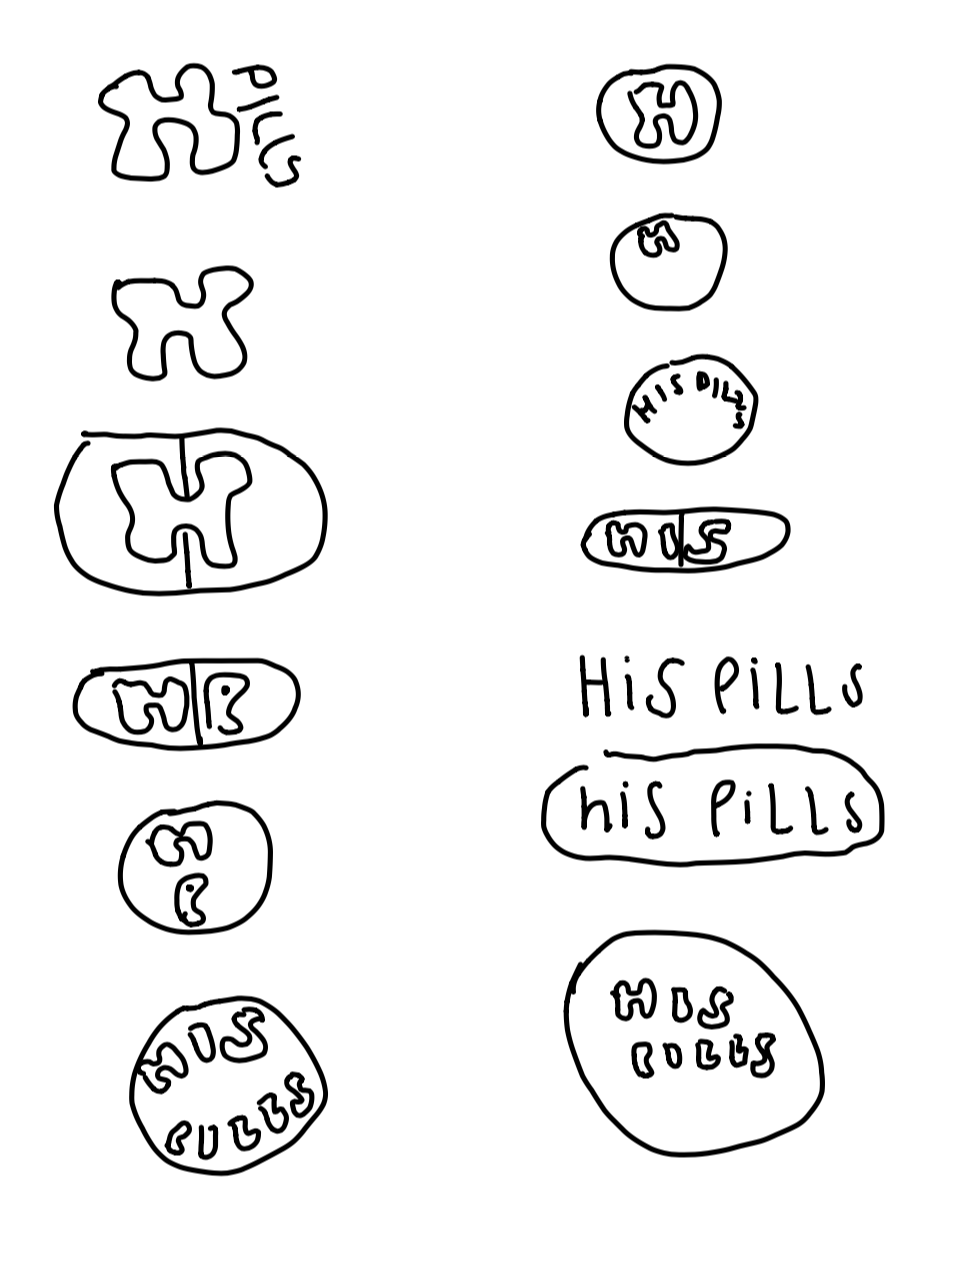 H PILLS
H
H
HP
H
P
HIS
PILLS
H
H
HIS PILLS
HIS
HiS PiLLS
hiS PiLLS
HIS
PILLS